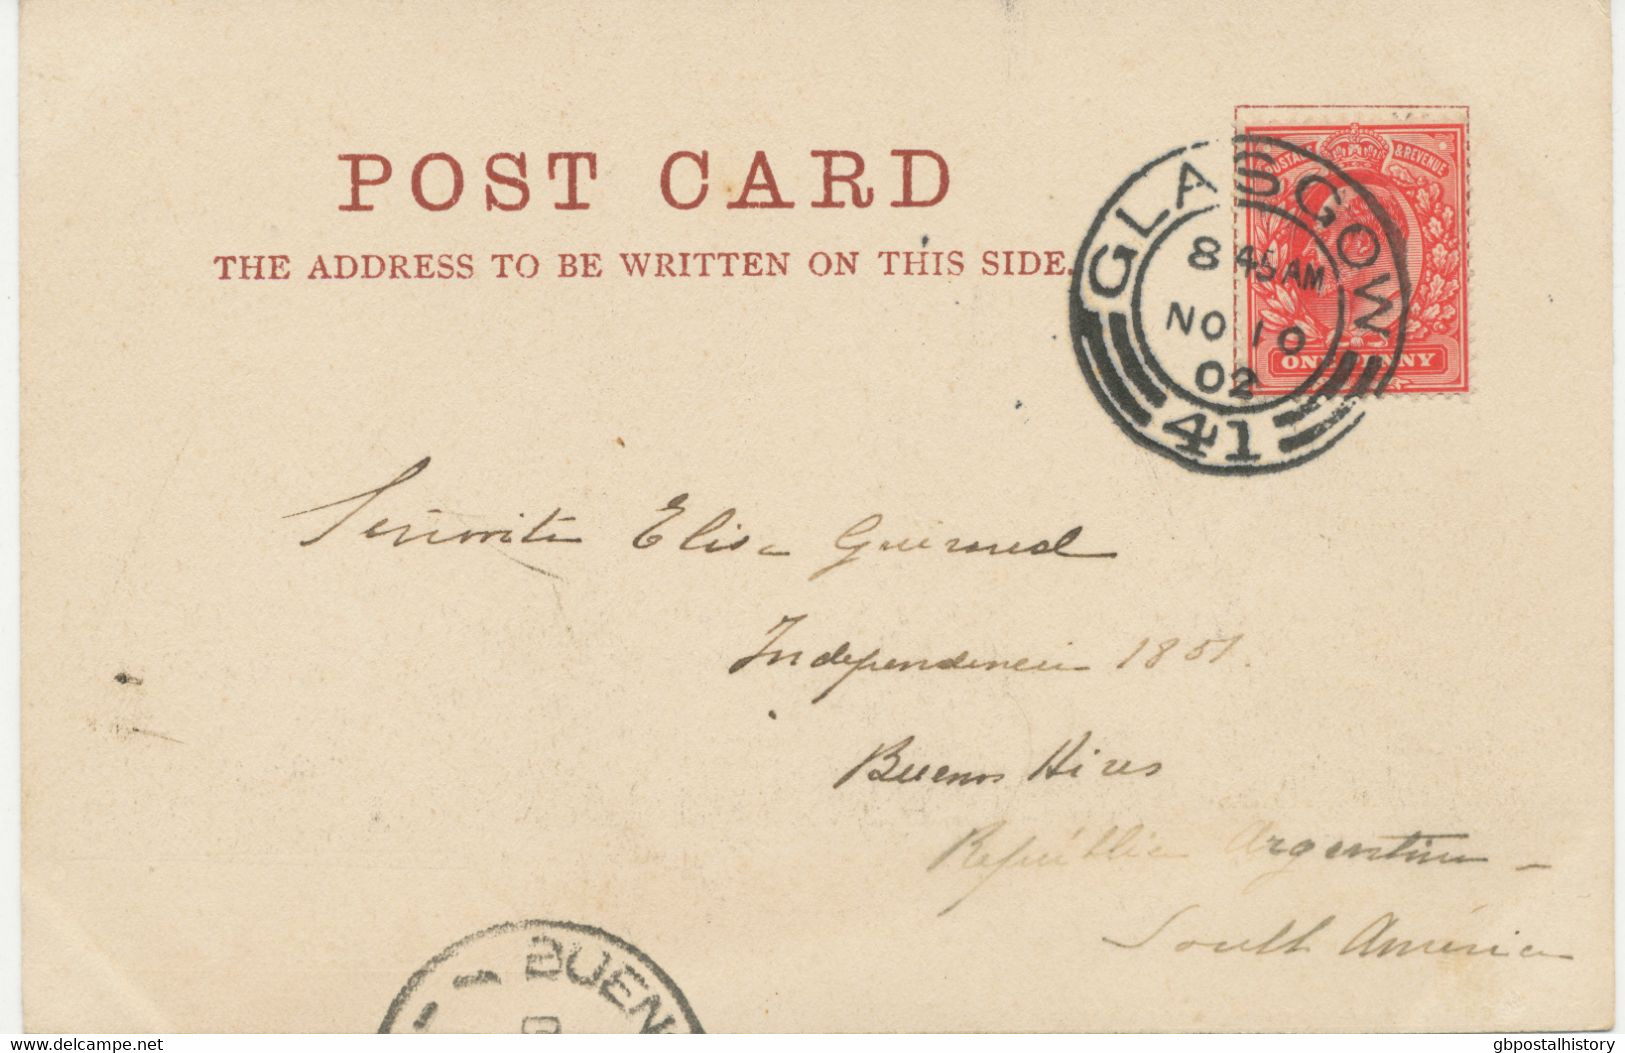 POST CARD
THE ADDRESS TO BE WRITTEN ON THIS SIDE.
POSTAGE & REVENUE
ONE PENNY
GLASGOW
8 45 AM
NO 10
02
41
Señorita Elisa
Independencia 1851.
Buenos Aires
República Argentina -
South América
BUEN
delcampe.net
gbpostalhistory